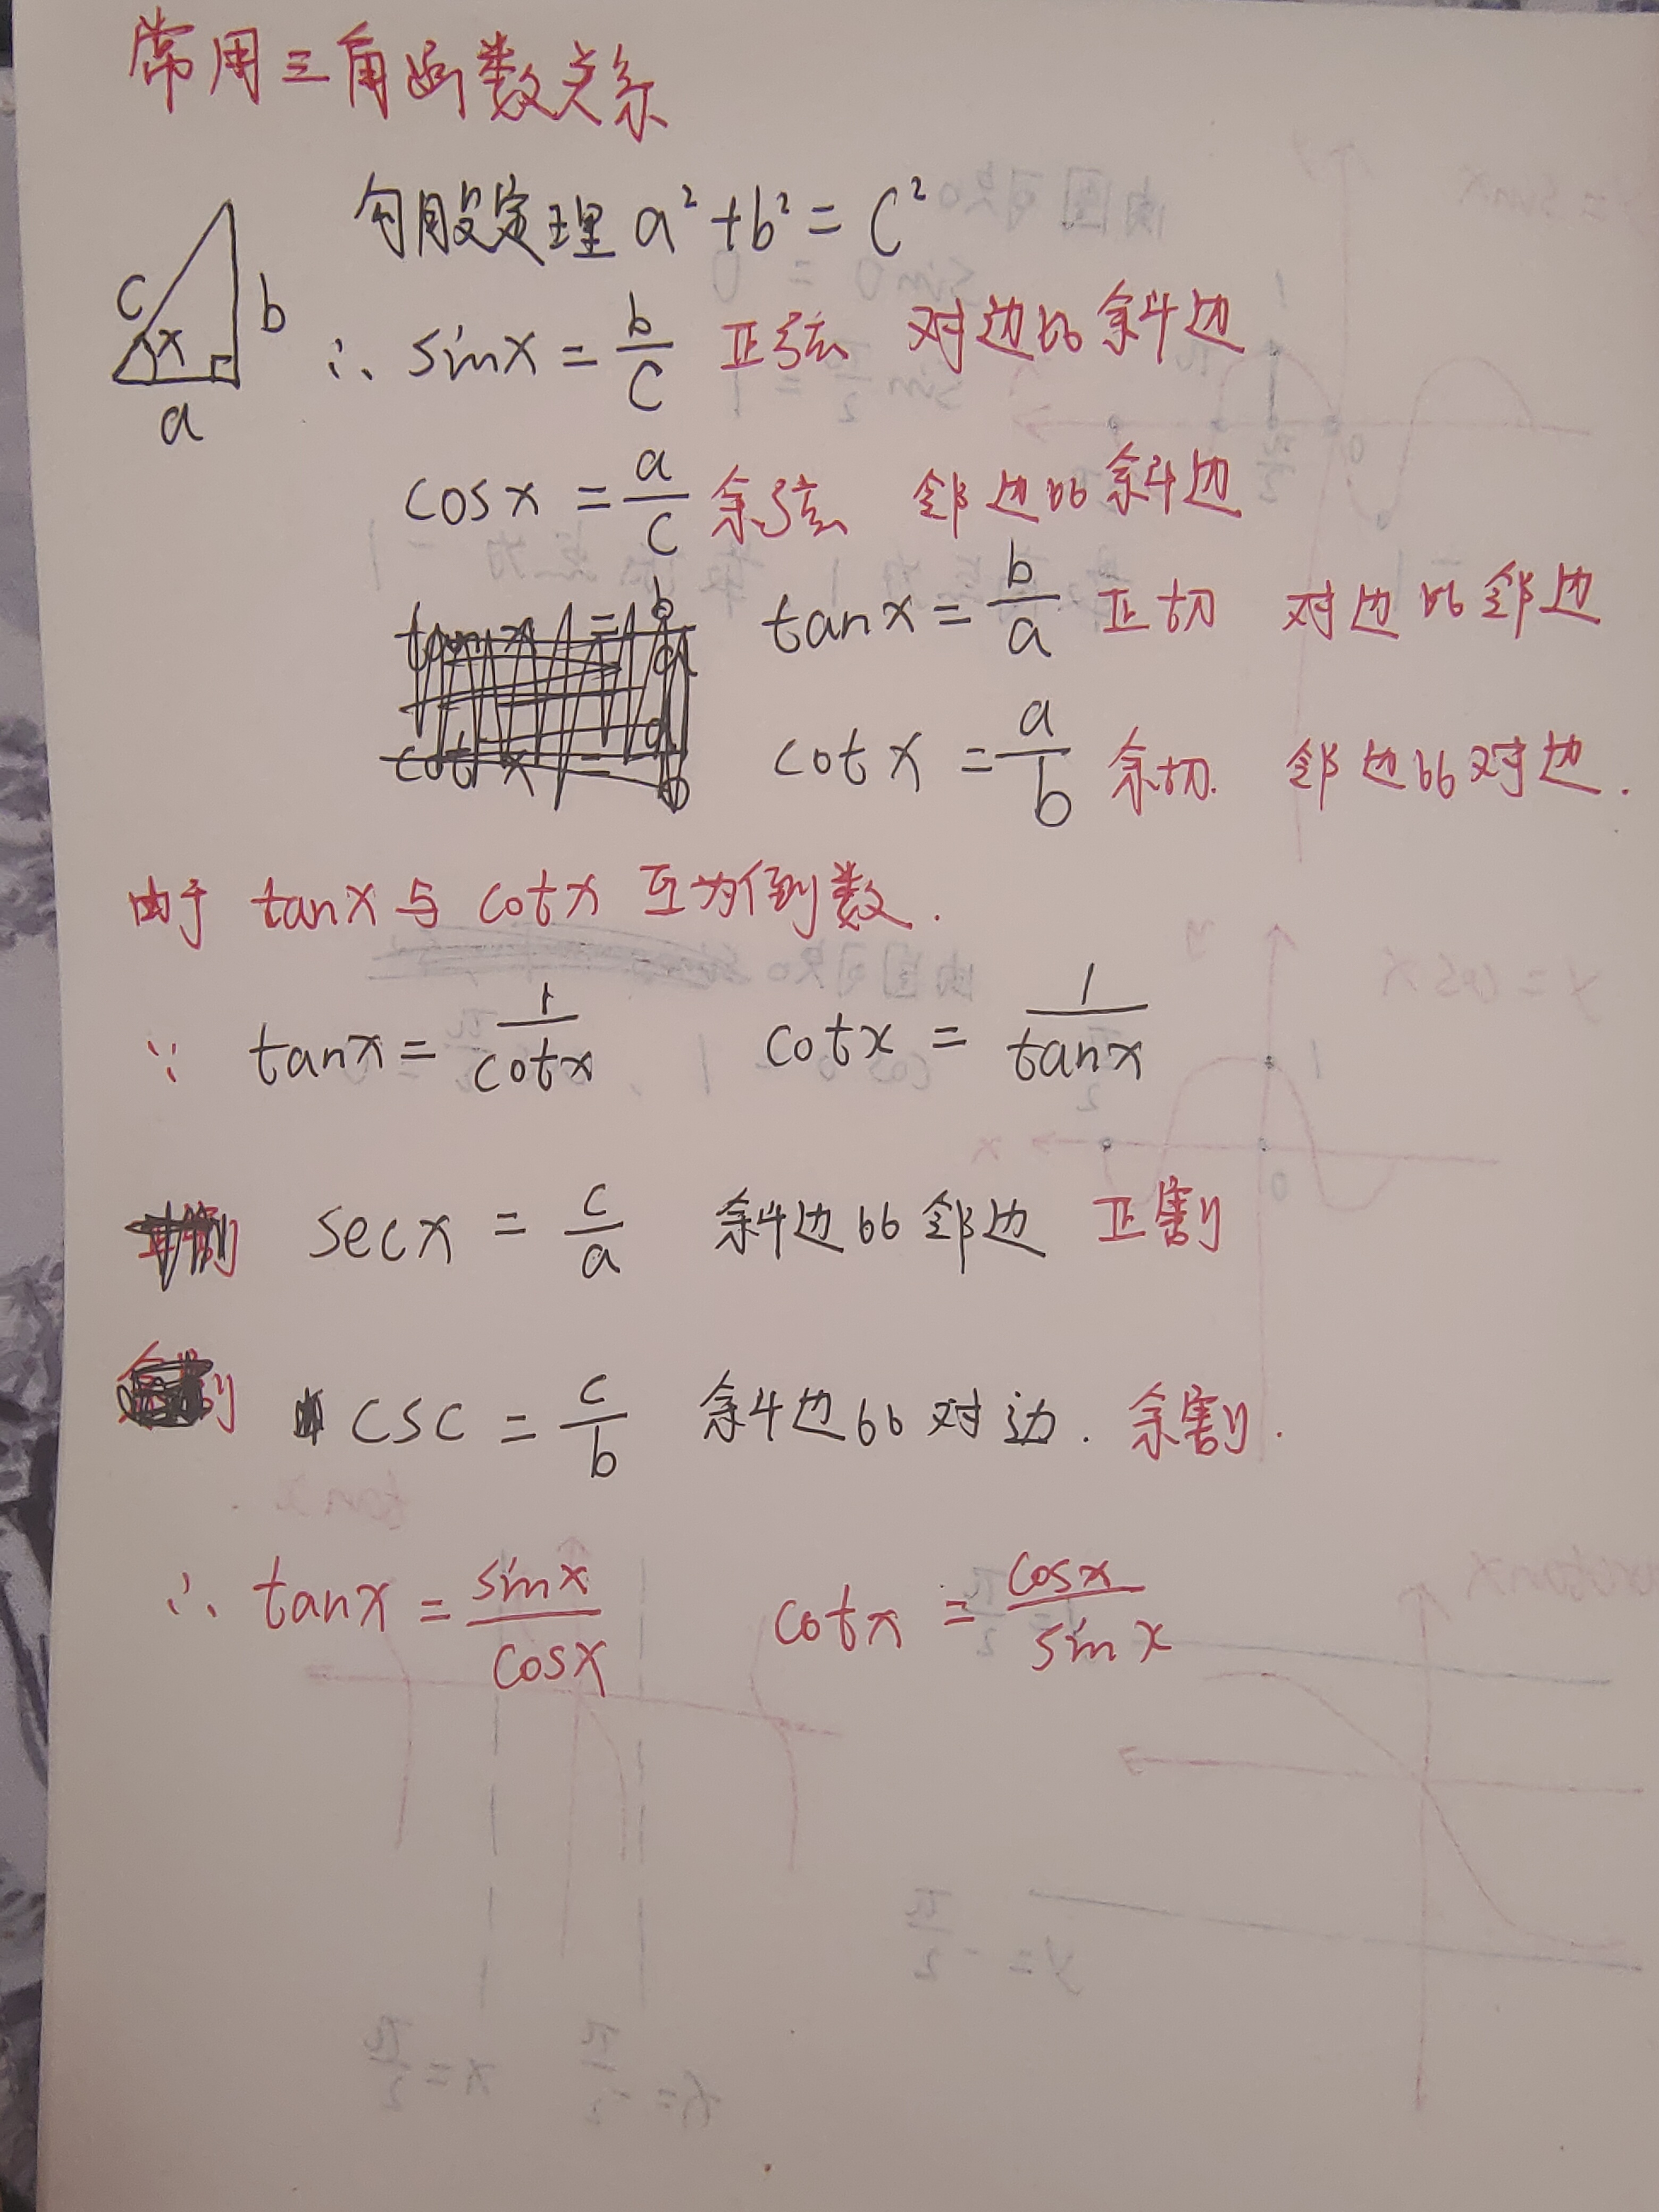 常用三角函数关系
勾股定理 a²+b²=c²
c
b
x
a
∴ sinx = b/c 正弦 对边比斜边
cosx = a/c 余弦 邻边比斜边
tanx = b/a 正切 对边比邻边
cotx = a/b 余切. 邻边比对边.
由于 tanx与 cotx 互为倒数.
∵ tanx = 1/cotx cotx = 1/tanx
secx = c/a 斜边比邻边 正割
csc = c/b 斜边比对边. 余割.
∴ tanx = sinx/cosx cotx = cosx/sinx